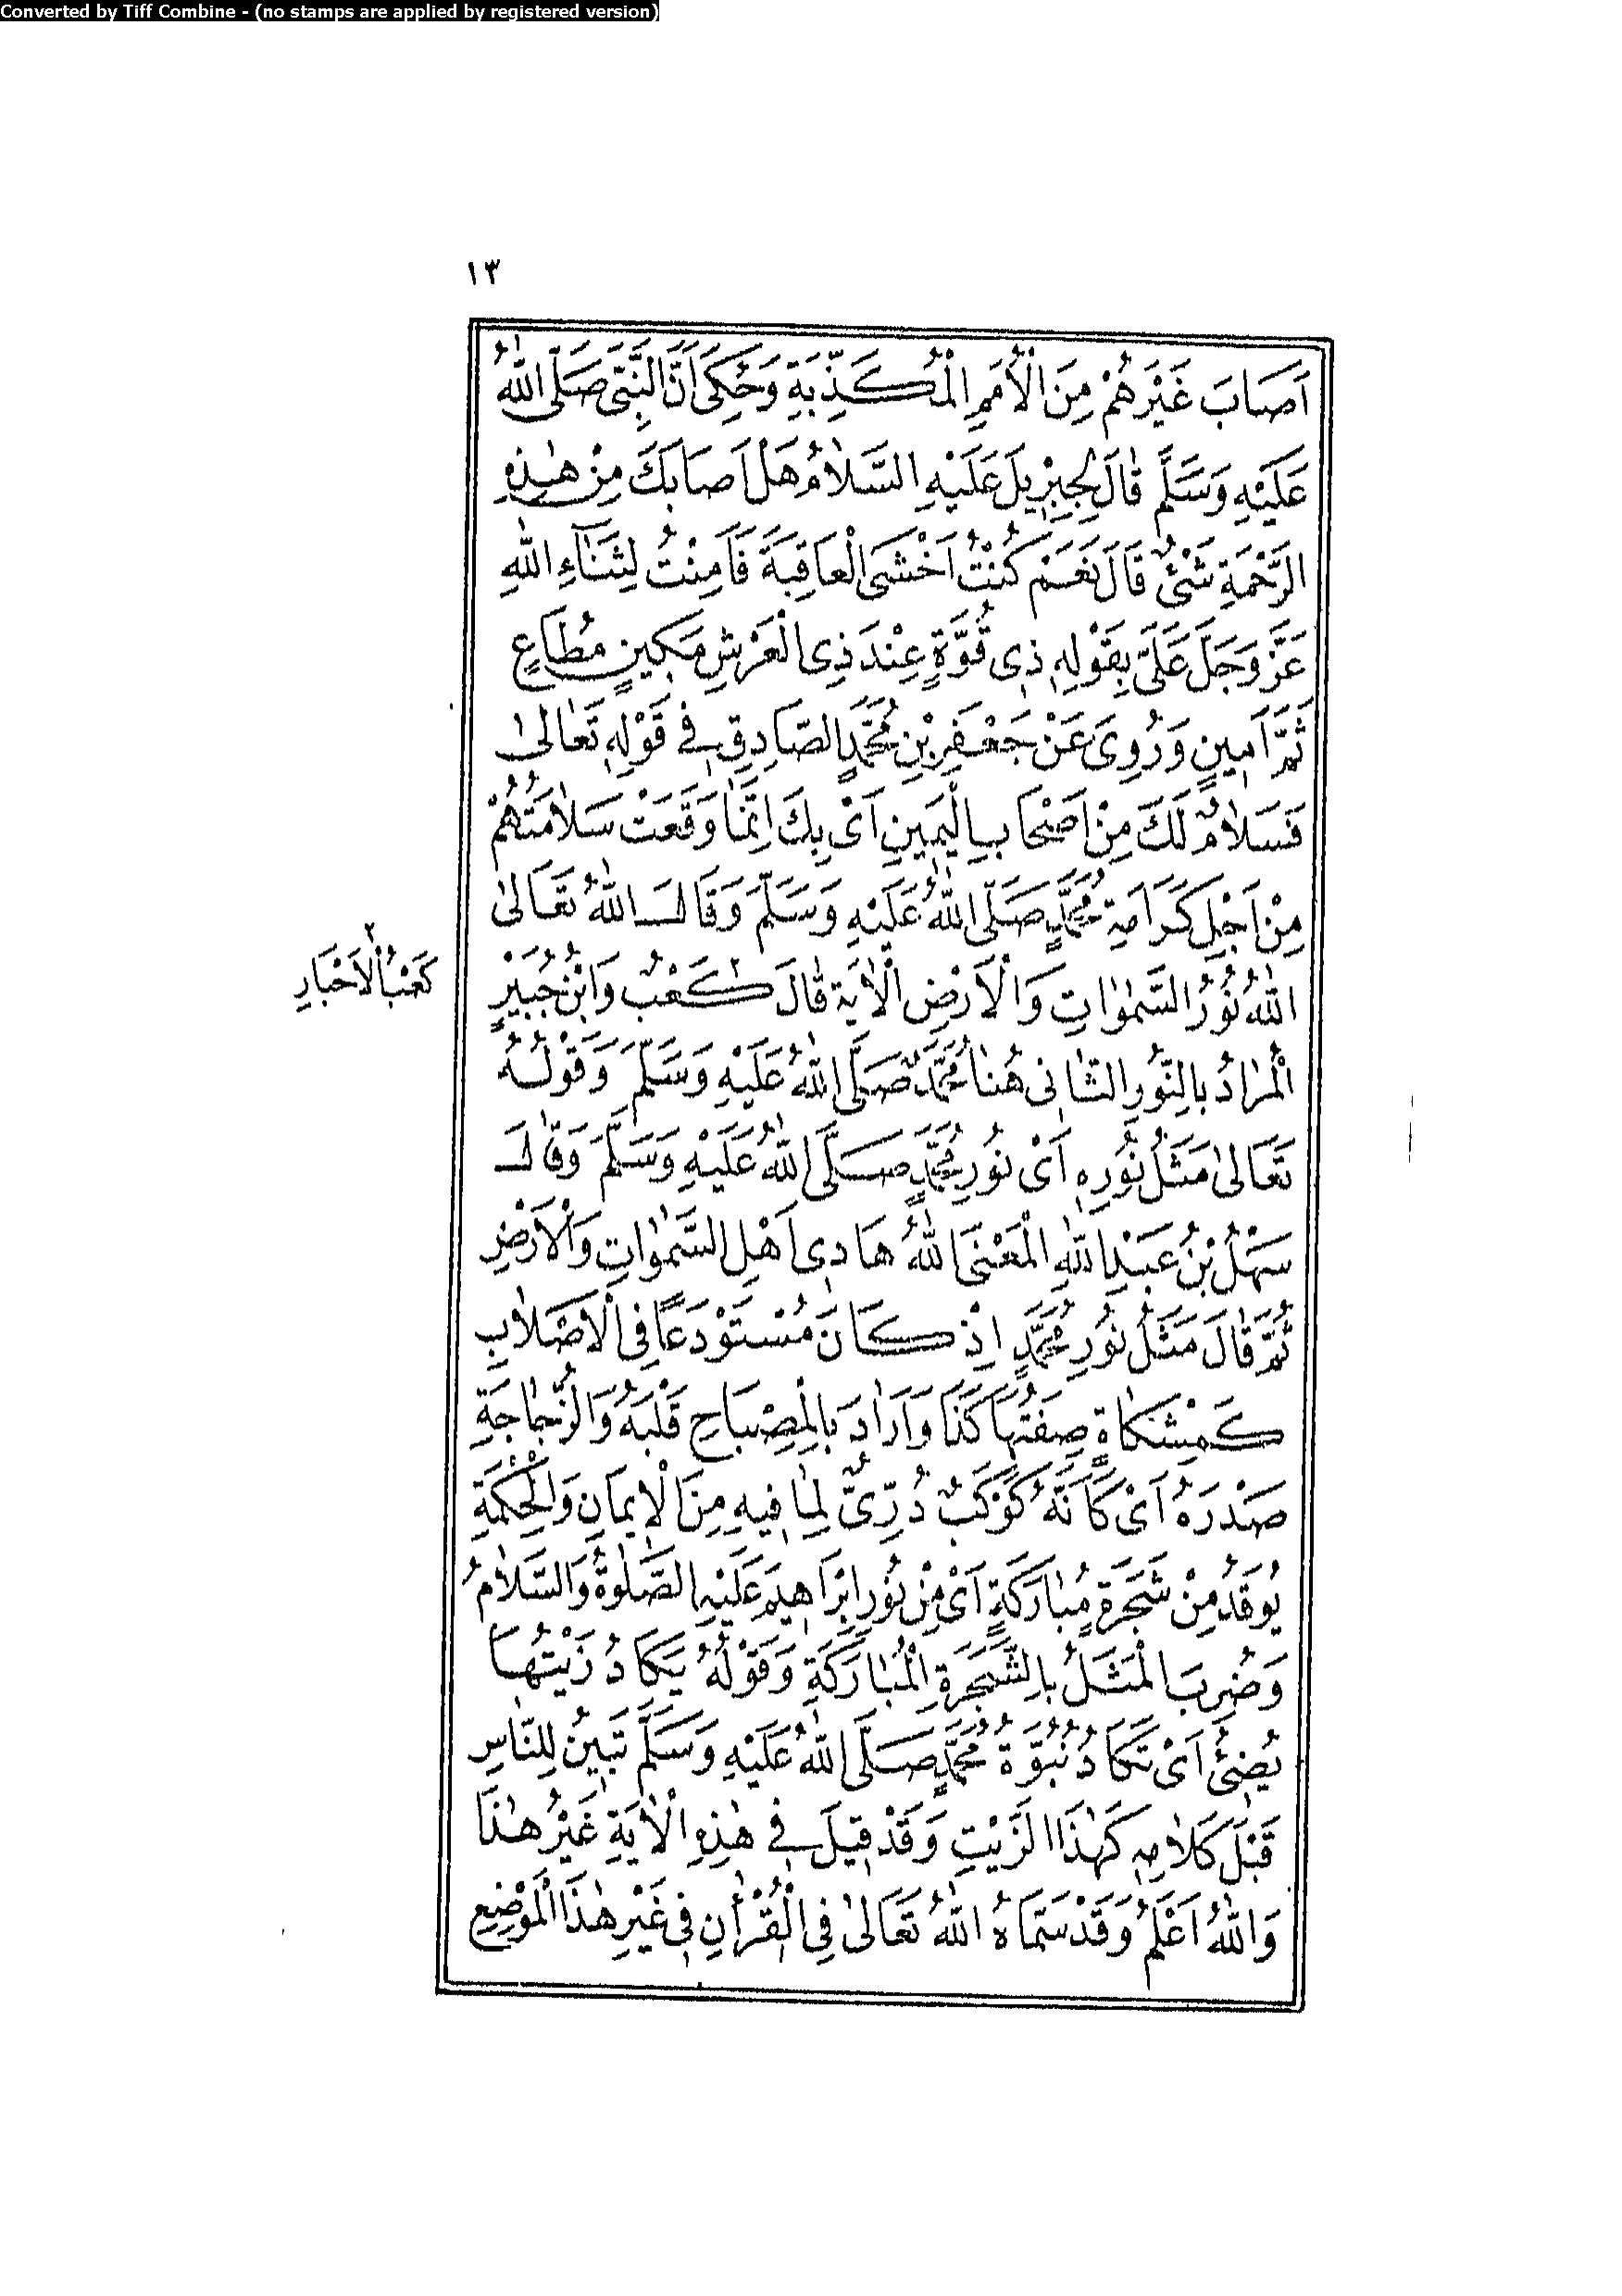 Converted by Tiff Combine - (no stamps are applied by registered version)
١٣
اَصَابَ غَيْرَهُمْ مِنَ الْاُمَمِ الْمُكَذِّبَةِ وَحُكِىَ اَنَّ النَّبِىَّ صَلَّى اللّٰهُ
عَلَيْهِ وَسَلَّمَ قَالَ لِجِبْرِيلَ عَلَيْهِ السَّلَامُ هَلْ اَصَابَكَ مِنْ هٰذِهِ
الرَّحْمَةِ شَىْءٌ قَالَ نَعَمْ كُنْتُ اَخْشَى الْعَاقِبَةَ فَاَمِنْتُ لِثَنَاءِ اللّٰهِ
عَزَّ وَجَلَّ عَلَىَّ بِقَوْلِهِ ذِى قُوَّةٍ عِنْدَ ذِى الْعَرْشِ مَكِينٍ مُطَاعٍ
ثَمَّ اَمِينٍ وَرُوِىَ عَنْ جَعْفَرِ بْنِ مُحَمَّدٍ الصَّادِقِ فِى قَوْلِهِ تَعَالٰى
فَسَلَامٌ لَكَ مِنْ اَصْحَابِ الْيَمِينِ اَىْ بِكَ اِنَّمَا وَقَعَتْ سَلَامَتُهُمْ
مِنْ اَجْلِ كَرَامَةِ مُحَمَّدٍ صَلَّى اللّٰهُ عَلَيْهِ وَسَلَّمَ وَقَالَ اللّٰهُ تَعَالٰى
اَللّٰهُ نُورُ السَّمٰوَاتِ وَالْاَرْضِ الْاٰيَةَ قَالَ كَعْبٌ٢ وَابْنُ جُبَيْرٍ
كَعْبُ الْاَحْبَارِ٢
اَلْمُرَادُ بِالنُّورِ الثَّانِى هُنَا مُحَمَّدٌ صَلَّى اللّٰهُ عَلَيْهِ وَسَلَّمَ وَقَوْلُهُ
تَعَالٰى مَثَلُ نُورِهِ اَىْ نُورِ مُحَمَّدٍ صَلَّى اللّٰهُ عَلَيْهِ وَسَلَّمَ وَقَالَ
سَهْلُ بْنُ عَبْدِ اللّٰهِ الْمَعْنَى اللّٰهُ هَادِى اَهْلِ السَّمٰوَاتِ وَالْاَرْضِ
ثُمَّ قَالَ مَثَلُ نُورِ مُحَمَّدٍ اِذْ كَانَ مُسْتَوْدَعًا فِى الْاَصْلَابِ
كَمِشْكَاةٍ صِفَتُهَا كَذَا وَاَرَادَ بِالْمِصْبَاحِ قَلْبَهُ وَالزُّجَاجَةِ
صَدْرَهُ اَىْ كَاَنَّهُ كَوْكَبٌ دُرِّىٌّ لِمَا فِيهِ مِنَ الْاِيمَانِ وَالْحِكْمَةِ
يُوقَدُ مِنْ شَجَرَةٍ مُبَارَكَةٍ اَىْ مِنْ نُورِ اِبْرَاهِيمَ عَلَيْهِ الصَّلٰوةُ وَالسَّلَامُ
وَضُرِبَ الْمَثَلُ بِالشَّجَرَةِ الْمُبَارَكَةِ وَقَوْلُهُ يَكَادُ زَيْتُهَا
يُضِئُ اَىْ تَكَادُ نُبُوَّةُ مُحَمَّدٍ صَلَّى اللّٰهُ عَلَيْهِ وَسَلَّمَ تَبِينُ لِلنَّاسِ
قَبْلَ كَلَامِهِ كَهٰذَا الزَّيْتِ وَقَدْ قِيلَ فِى هٰذِهِ الْاٰيَةِ غَيْرُ هٰذَا
وَاللّٰهُ اَعْلَمُ وَقَدْ سَمَّاهُ اللّٰهُ تَعَالٰى فِى الْقُرْاٰنِ فِى غَيْرِ هٰذَا الْمَوْضِعِ